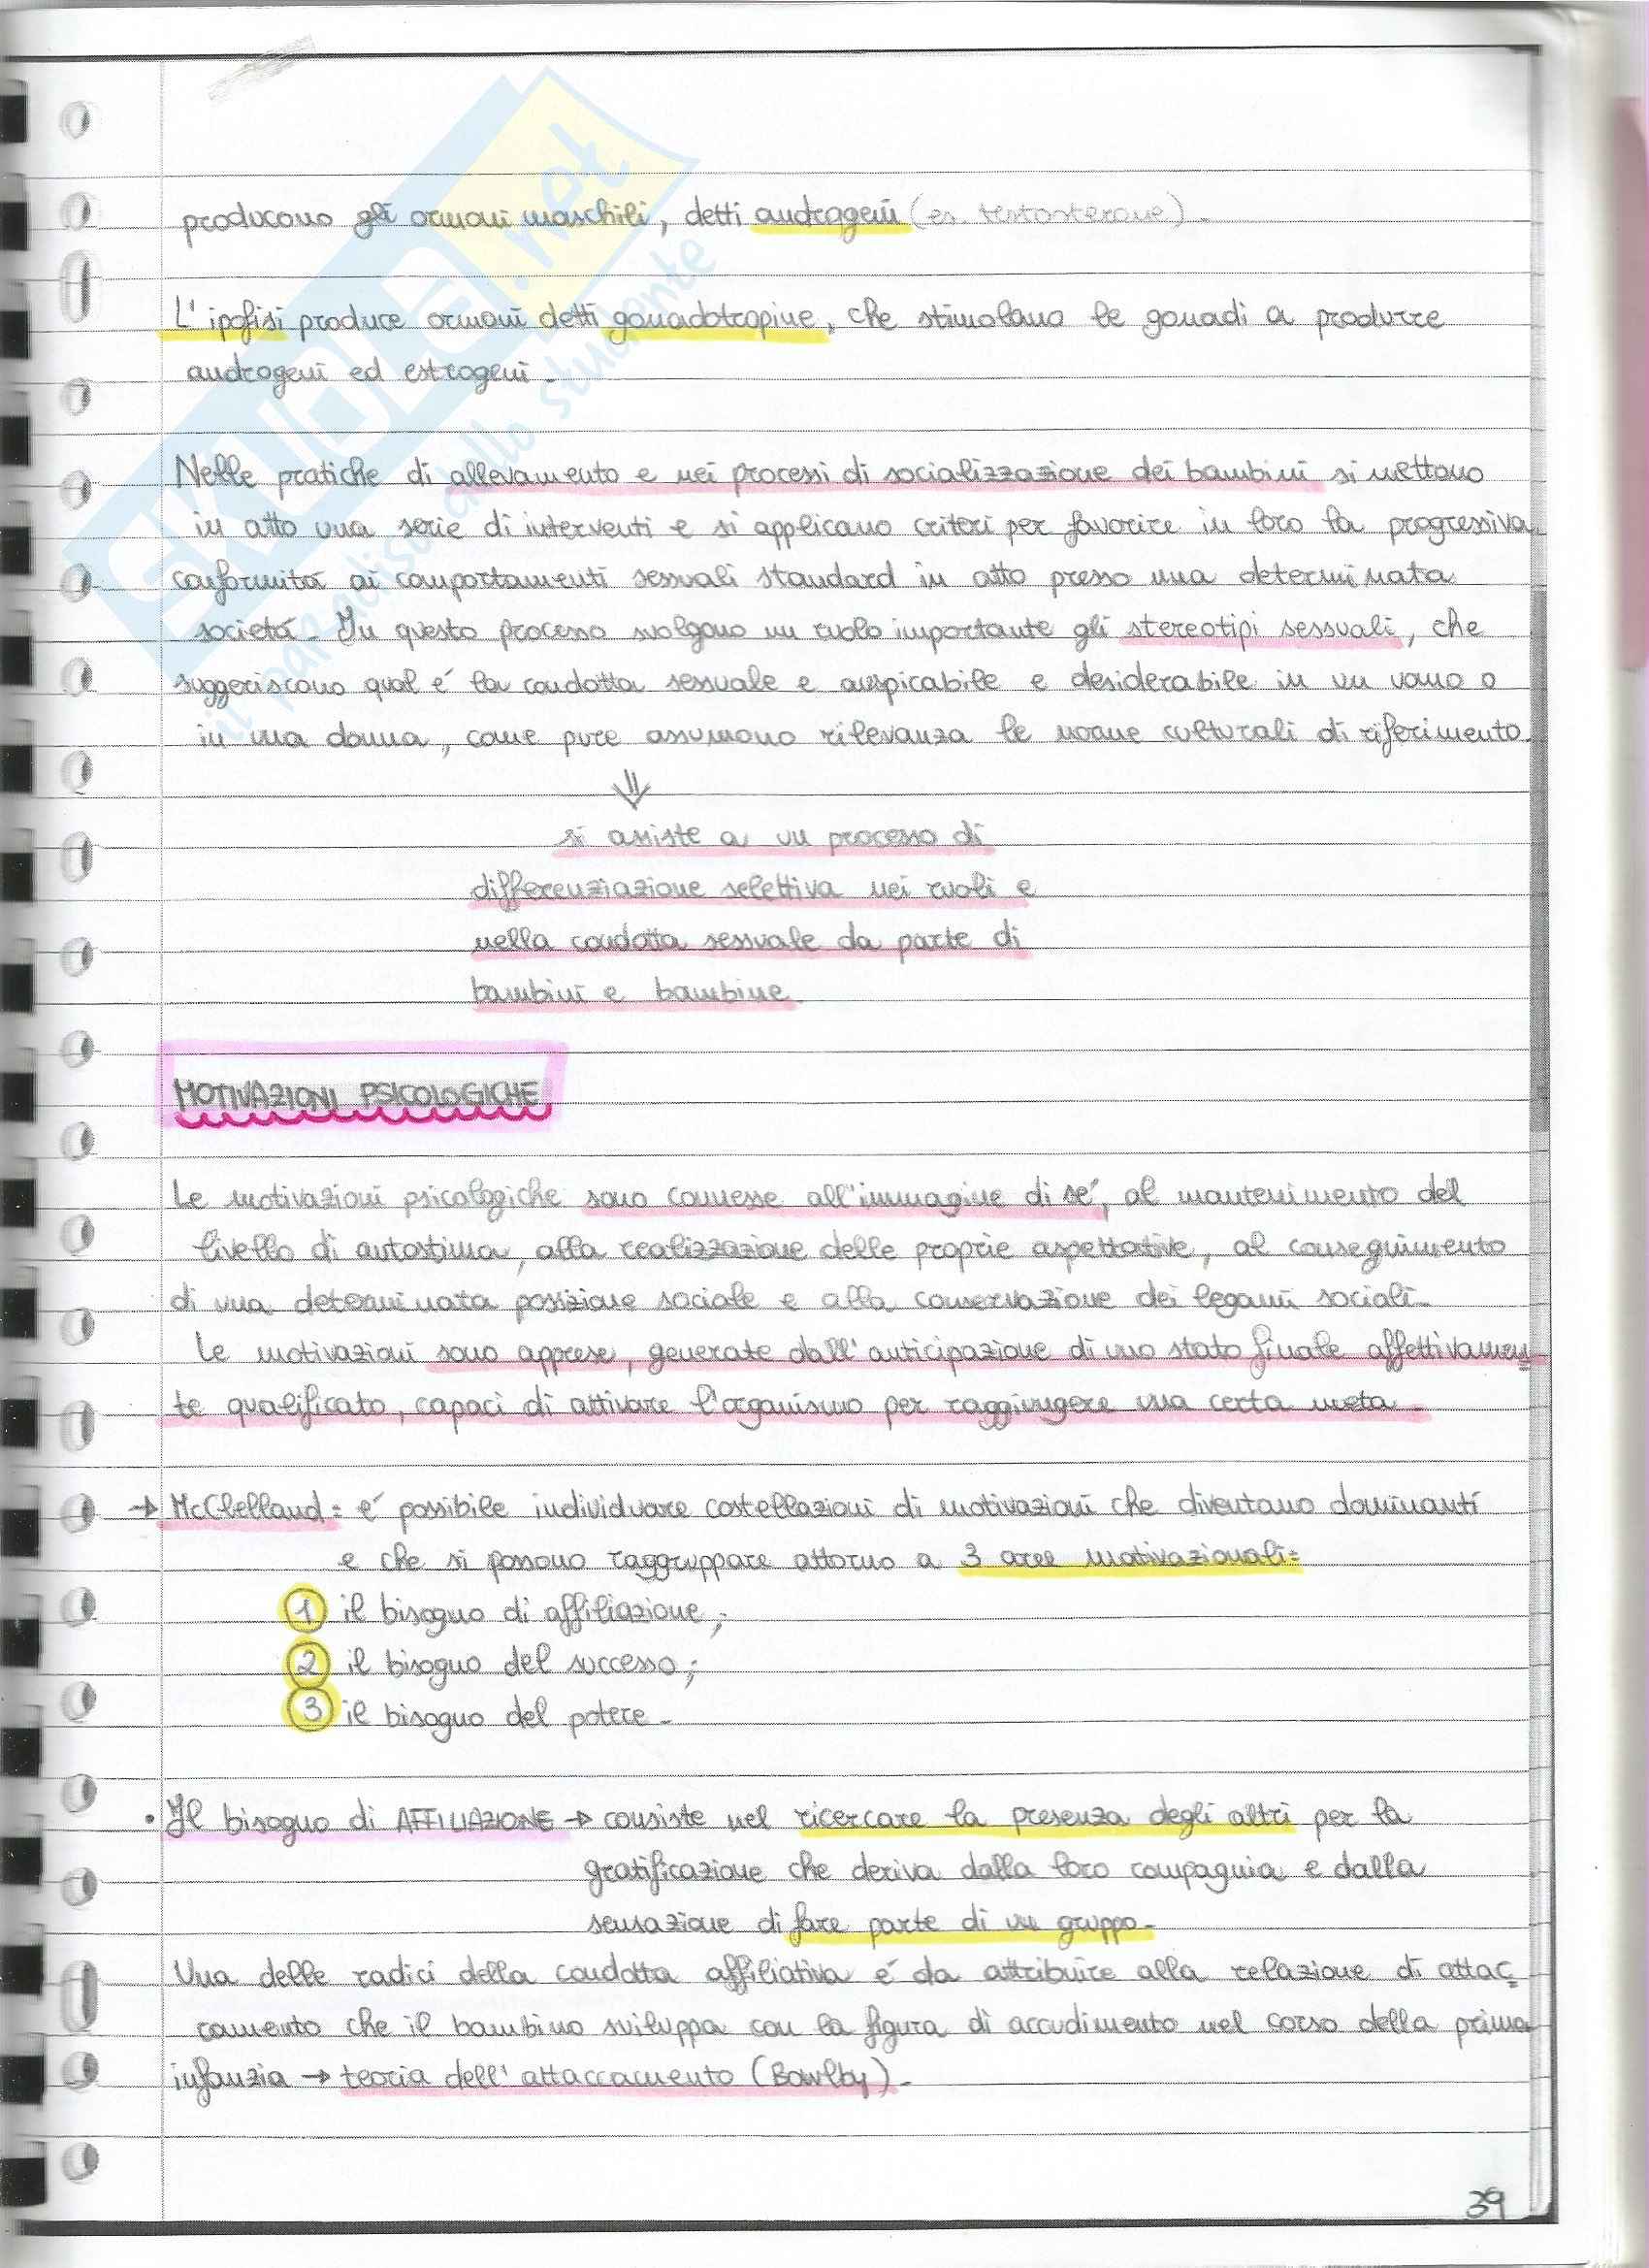 SKUOLA.net
il paradiso dello studente
producono gli ormoni maschili, detti androgeni (es. testosterone).
L'ipofisi produce ormoni detti gonadotropine, che stimolano le gonadi a produrre
androgeni ed estrogeni.
Nelle pratiche di allevamento e nei processi di socializzazione dei bambini si mettono
in atto una serie di interventi e si applicano criteri per favorire in loro la progressiva
conformità ai comportamenti sessuali standard in atto presso una determinata
società. In questo processo svolgono un ruolo importante gli stereotipi sessuali, che
suggeriscono qual é la condotta sessuale e auspicabile e desiderabile in un uomo o
in una donna, come pure assumono rilevanza le norme culturali di riferimento.
⇓
si assiste a un processo di
differenziazione selettiva nei ruoli e
nella condotta sessuale da parte di
bambini e bambine
MOTIVAZIONI PSICOLOGICHE
Le motivazioni psicologiche sono connesse all'immagine di sé, al mantenimento del
livello di autostima, alla realizzazione delle proprie aspettative, al conseguimento
di una determinata posizione sociale e alla conservazione dei legami sociali.
Le motivazioni sono apprese, generate dall'anticipazione di uno stato finale affettivamen=
te qualificato, capaci di attivare l'organismo per raggiungere una certa meta.
→ McClelland: é possibile individuare costellazioni di motivazioni che diventano dominanti
e che si possono raggruppare attorno a 3 aree motivazionali:
1 il bisogno di affiliazione;
2 il bisogno del successo;
3 il bisogno del potere.
• Il bisogno di AFFILIAZIONE → consiste nel ricercare la presenza degli altri per la
gratificazione che deriva dalla loro compagnia e dalla
sensazione di fare parte di un gruppo.
Una delle radici della condotta affiliativa é da attribuire alla relazione di attac=
camento che il bambino sviluppa con la figura di accudimento nel corso della prima
infanzia → teoria dell'attaccamento (Bowlby).
39